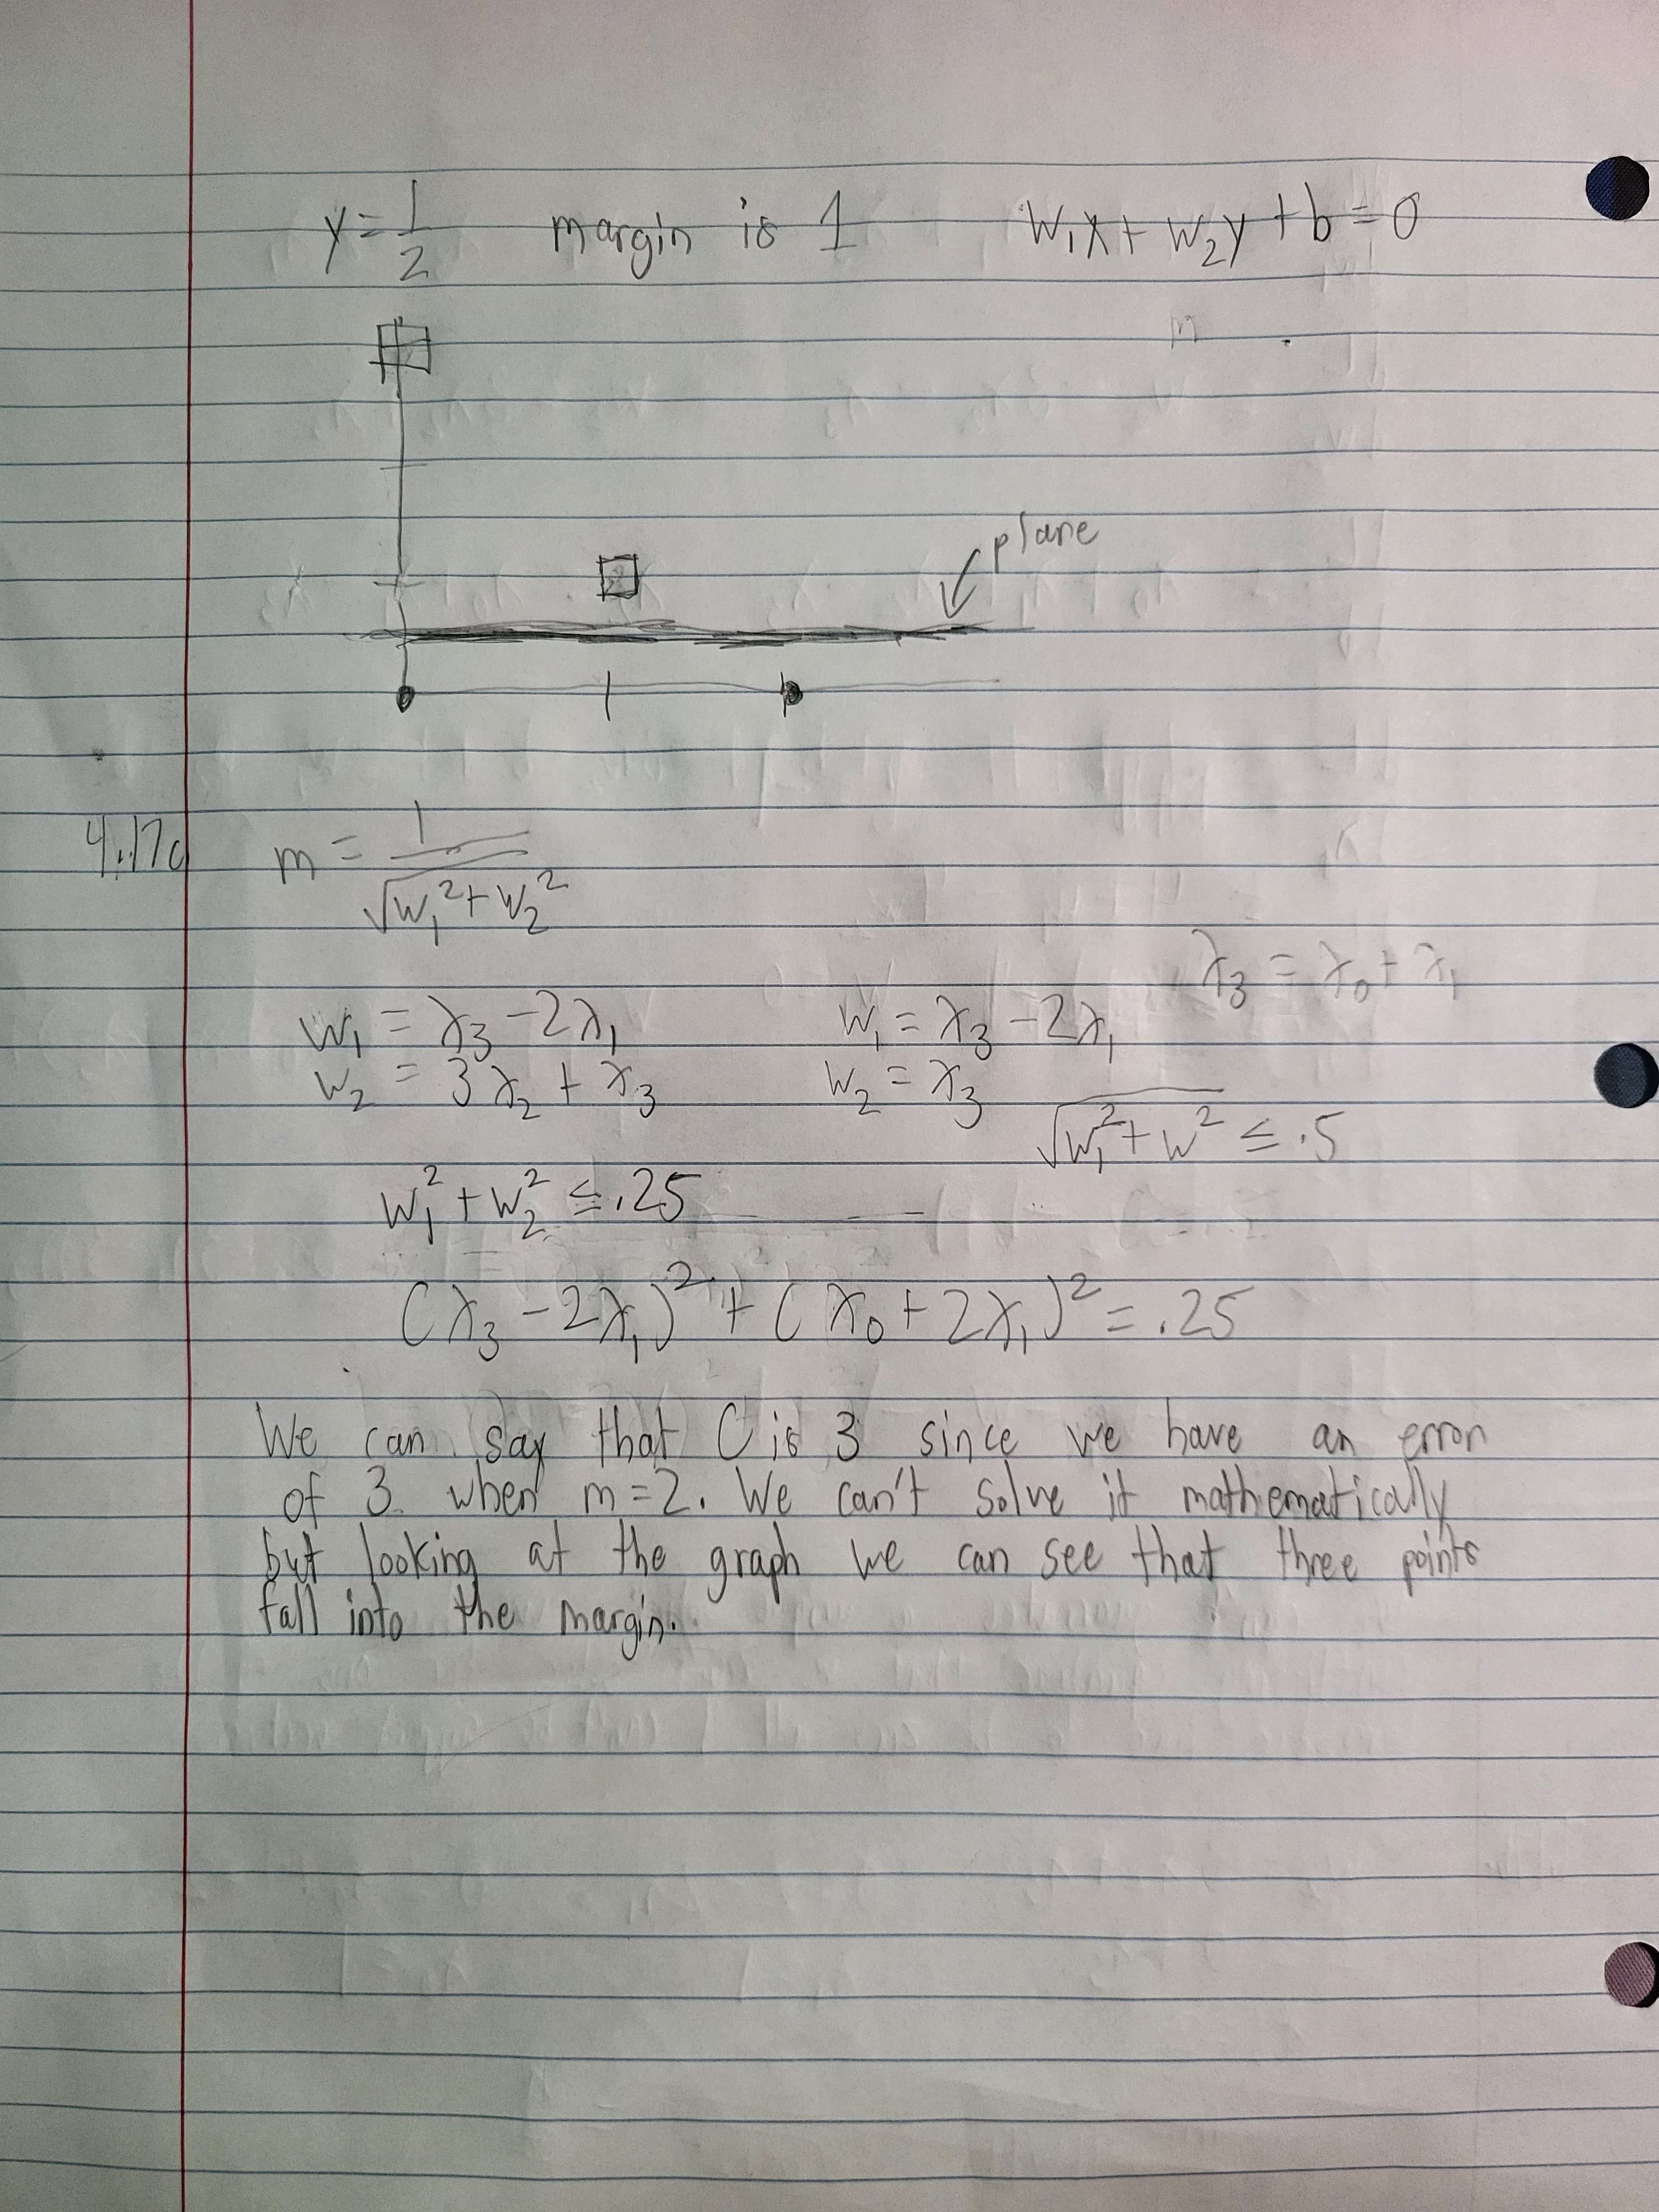 y = 1/2 margin is 1 w₁x + w₂y + b = 0
m
plane
4.17c m = 1/√(w₁² + w₂²)
λ₃ = λ₀ + λ₁
w₁ = λ₃ - 2λ₁ w₁ = λ₃ - 2λ₁
w₂ = 3λ₂ + λ₃ w₂ = λ₃
√(w₁² + w²) ≤ .5
w₁² + w₂² ≤ .25
(λ₃ - 2λ₁)² + (λ₀ + 2λ₁)² = .25
We can say that C is 3 since we have an error
of 3 when m = 2. We can't solve it mathematically
but looking at the graph we can see that three points
fall into the margin.